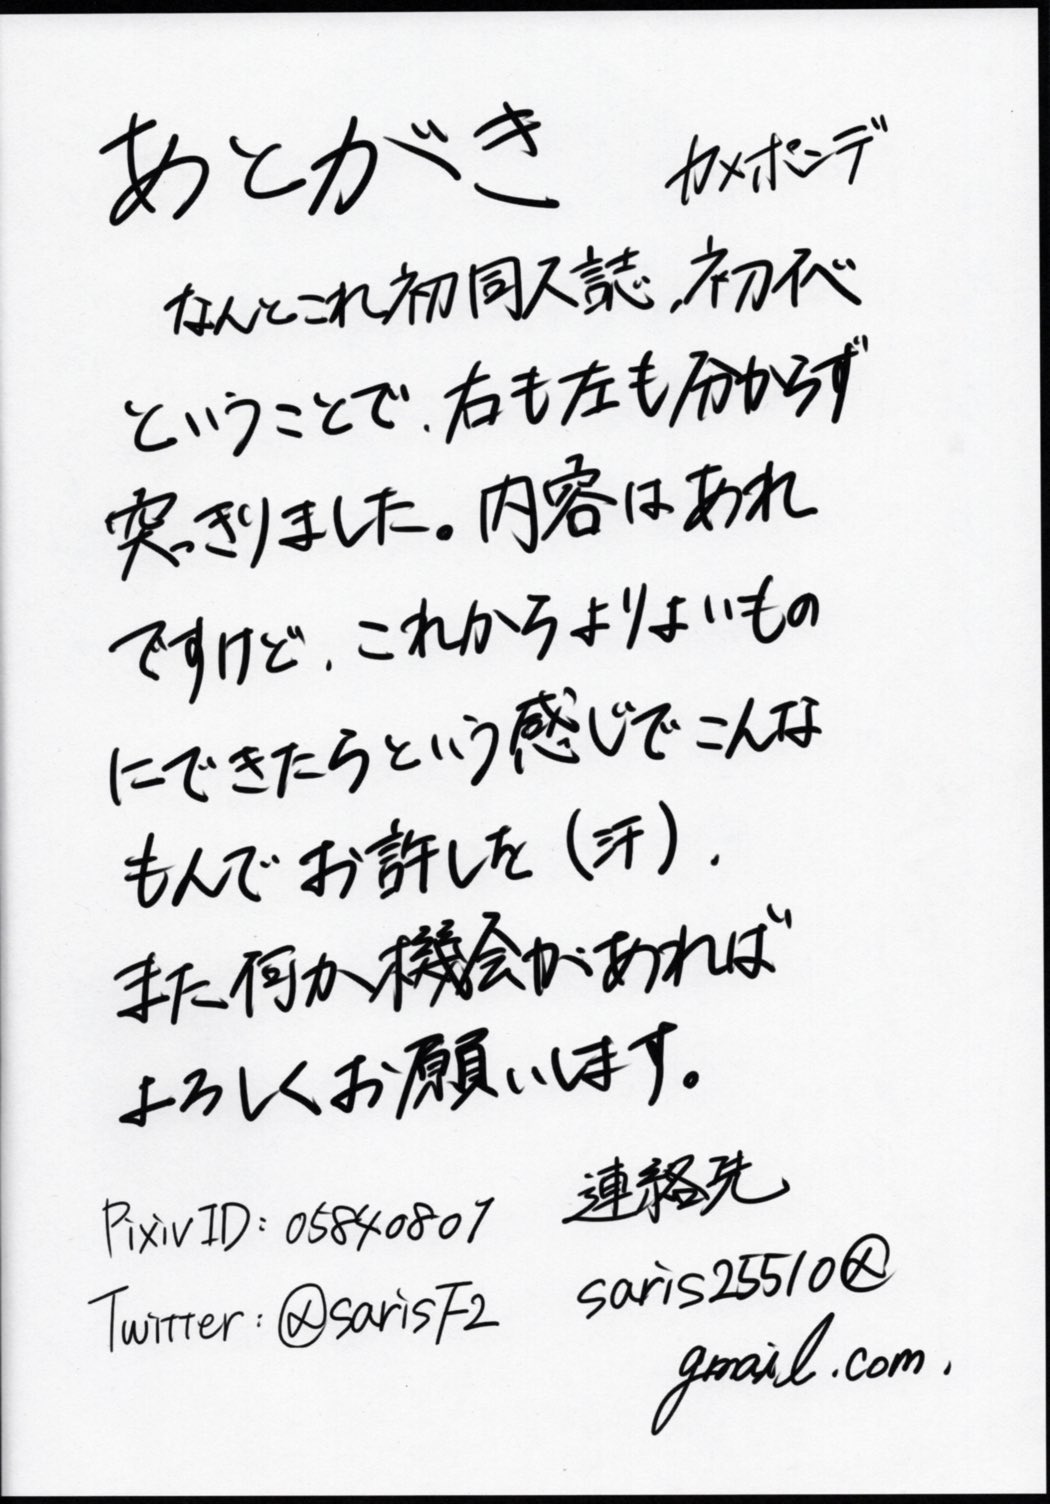 あとがき カメポンデ
なんとこれ初同人誌、初イベ
ということで、右も左も分からず
突っきりました。内容はあれ
ですけど、これからよりよいもの
にできたらという感じでこんな
もんでお許しを(汗)、
また何か機会があれば
よろしくお願いします。
PixivID: 05840807
Twitter: @sarisF2
連絡先
saris25510@
gmail.com.